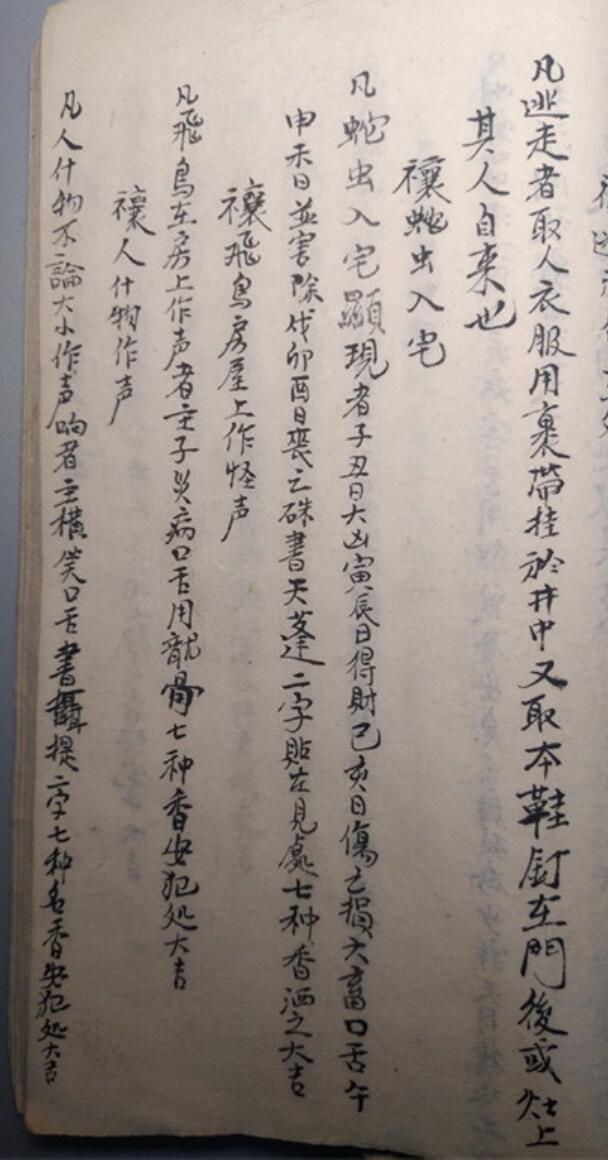 凡逃走者取人衣服用裹帶挂於井中又取本鞋釘在門後或灶上
其人自来也
禳蛇虫入宅
凡蛇虫入宅顯現者子丑日大凶寅辰日得財己亥日傷亡損六畜口舌午
申未日並害除戌卯酉日喪亡硃書天蓬二字貼在見處七种香洒之大吉
禳飛鳥房屋上作怪声
凡飛鳥在房上作声者主子災病口舌用龍骨七种香安犯処大吉
禳人什物作声
凡人什物不論大小作声响者主橫笑口舌書攝提二字七种名香安犯処大吉